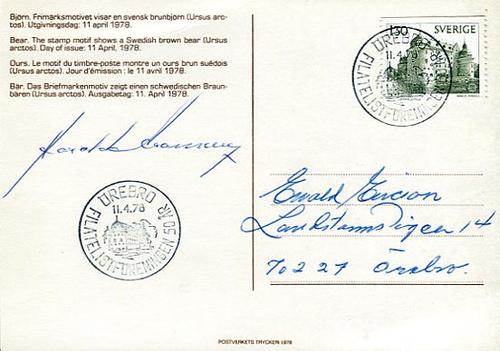 Björn. Frimärksmotivet visar en svensk brunbjörn (Ursus arc-
tos). Utgivningsdag: 11 april 1978.
Bear. The stamp motif shows a Swedish brown bear (Ursus
arctos). Day of issue: 11 April, 1978.
Ours. Le motif du timbre-poste montre un ours brun suédois
(Ursus arctos). Jour d'émission : le 11 avril 1978.
Bär. Das Briefmarkenmotiv zeigt einen schwedischen Braun-
bären (Ursus arctos). Ausgabetag: 11. April 1978.
130 SVERIGE
ÖREBRO
11.4.78
FILATELISTFÖRENINGEN 50 ÅR
Harald
Ewald Ericson
70227 Örebro.
14
ÖREBRO
11.4.78
FILATELISTFÖRENINGEN 50 ÅR
POSTVERKETS TRYCKERI 1978